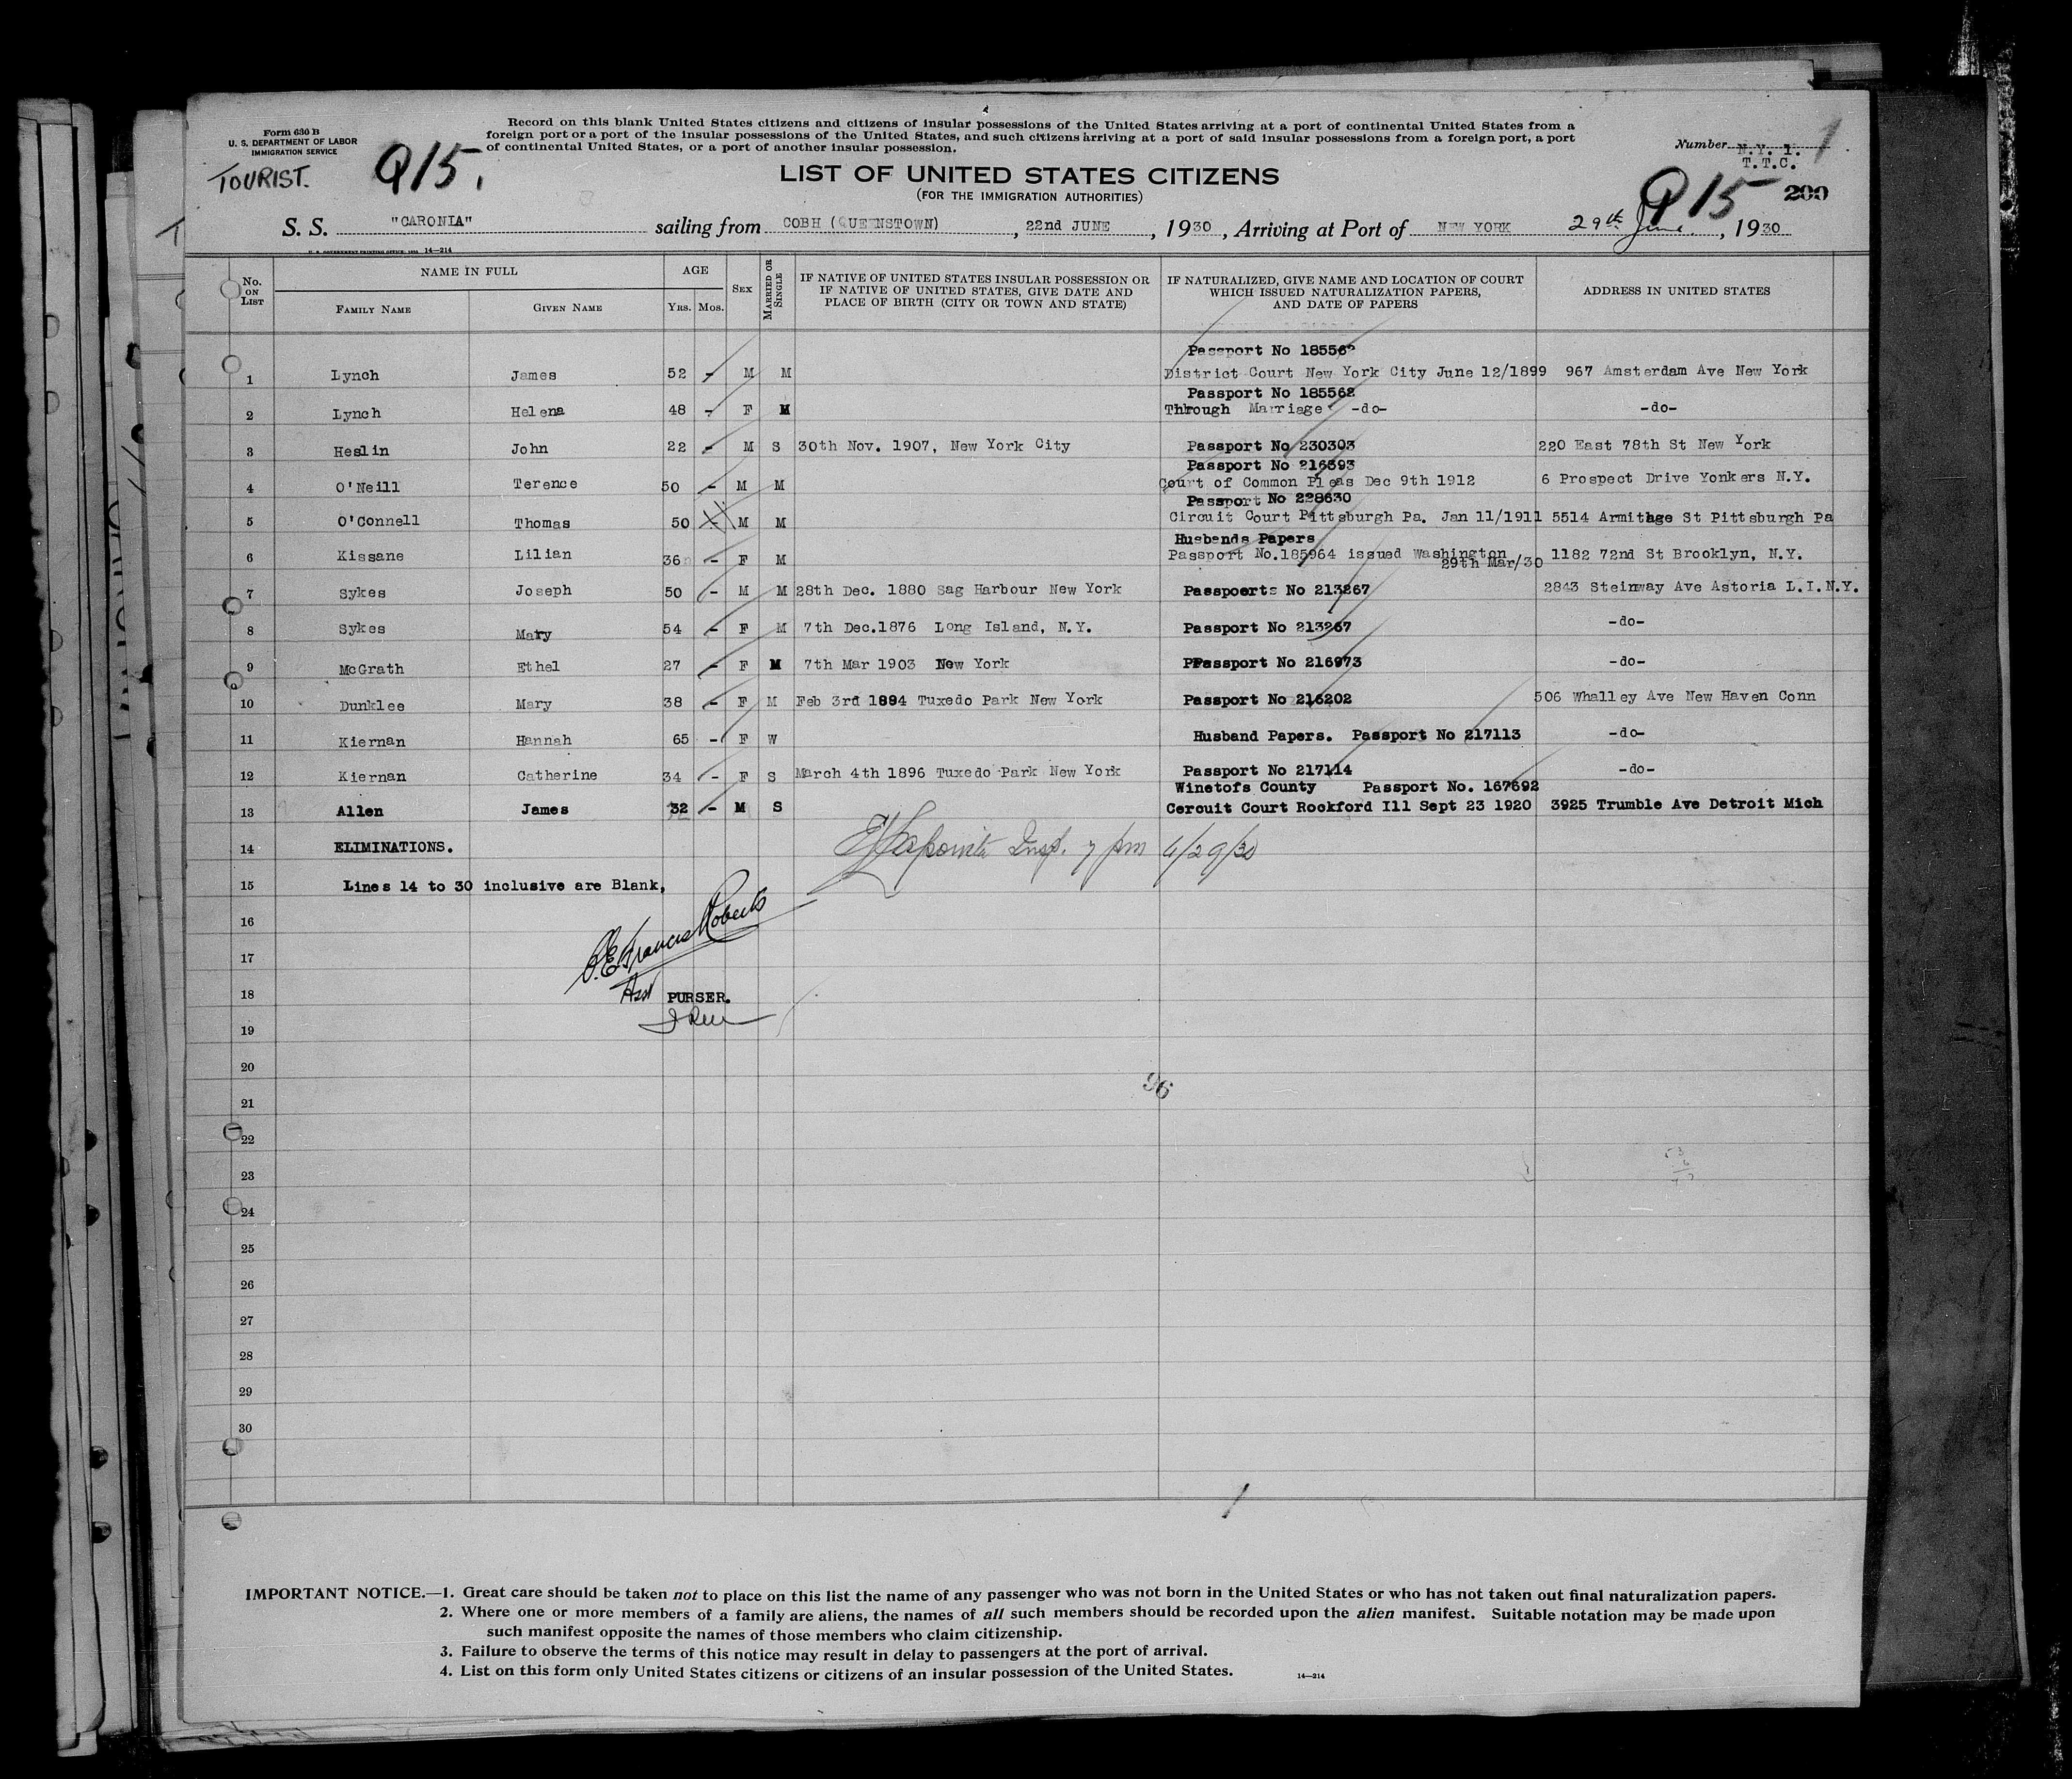 Form 630 B
U. S. DEPARTMENT OF LABOR
IMMIGRATION SERVICE
TOURIST.
Q15.
Record on this blank United States citizens and citizens of insular possessions of the United States arriving at a port of continental United States from a
foreign port or a port of the insular possessions of the United States, and such citizens arriving at a port of said insular possessions from a foreign port, a port
of continental United States, or a port of another insular possession.
Number N.Y. 1. 1
T.T.C.
LIST OF UNITED STATES CITIZENS
(FOR THE IMMIGRATION AUTHORITIES)
Q15 200
S. S. "CARONIA" sailing from COBH (QUEENSTOWN), 22nd JUNE, 1930, Arriving at Port of NEW YORK 29th June, 1930
14—214
No. ON LIST NAME IN FULL AGE SEX MARRIED OR SINGLE IF NATIVE OF UNITED STATES INSULAR POSSESSION OR IF NATIVE OF UNITED STATES, GIVE DATE AND PLACE OF BIRTH (CITY OR TOWN AND STATE) IF NATURALIZED, GIVE NAME AND LOCATION OF COURT WHICH ISSUED NATURALIZATION PAPERS, AND DATE OF PAPERS ADDRESS IN UNITED STATES
FAMILY NAME GIVEN NAME YRS. MOS.
Passport No 185562
1 Lynch James 52 - M M District Court New York City June 12/1899 967 Amsterdam Ave New York
Passport No 185562
2 Lynch Helena 48 - F M Through Marriage -do- -do-
3 Heslin John 22 - M S 30th Nov. 1907, New York City Passport No 230303 220 East 78th St New York
Passport No 216593
4 O'Neill Terence 50 - M M Court of Common Pleas Dec 9th 1912 6 Prospect Drive Yonkers N.Y.
Passport No 228630
5 O'Connell Thomas 50 - M M Circuit Court Pittsburgh Pa. Jan 11/1911 5514 Armithge St Pittsburgh Pa
Husbands Papers
6 Kissane Lilian 36 - F M Passport No.185964 issued Washington 1182 72nd St Brooklyn, N.Y.
29th Mar/30
7 Sykes Joseph 50 - M M 28th Dec. 1880 Sag Harbour New York Passpoerts No 213267 2843 Steinway Ave Astoria L.I.N.Y.
8 Sykes Mary 54 - F M 7th Dec.1876 Long Island, N.Y. Passport No 213267 -do-
9 McGrath Ethel 27 - F M 7th Mar 1903 New York PPassport No 216973 -do-
10 Dunklee Mary 38 - F M Feb 3rd 1894 Tuxedo Park New York Passport No 216202 506 Whalley Ave New Haven Conn
11 Kiernan Hannah 65 - F W Husband Papers. Passport No 217113 -do-
12 Kiernan Catherine 34 - F S March 4th 1896 Tuxedo Park New York Passport No 217114 -do-
Winetofs County Passport No. 167692
13 Allen James 32 - M S Cercuit Court Rockford Ill Sept 23 1920 3925 Trumble Ave Detroit Mich
14 ELIMINATIONS. Insp. 7 pm 6/29/30
15 Lines 14 to 30 inclusive are Blank,
16
17 Francis Roberts
18 Asst PURSER.
19
20
96
21
22
23
24
25
26
27
28
29
30
IMPORTANT NOTICE.—1. Great care should be taken not to place on this list the name of any passenger who was not born in the United States or who has not taken out final naturalization papers.
2. Where one or more members of a family are aliens, the names of all such members should be recorded upon the alien manifest. Suitable notation may be made upon
such manifest opposite the names of those members who claim citizenship.
3. Failure to observe the terms of this notice may result in delay to passengers at the port of arrival.
4. List on this form only United States citizens or citizens of an insular possession of the United States. 14—214